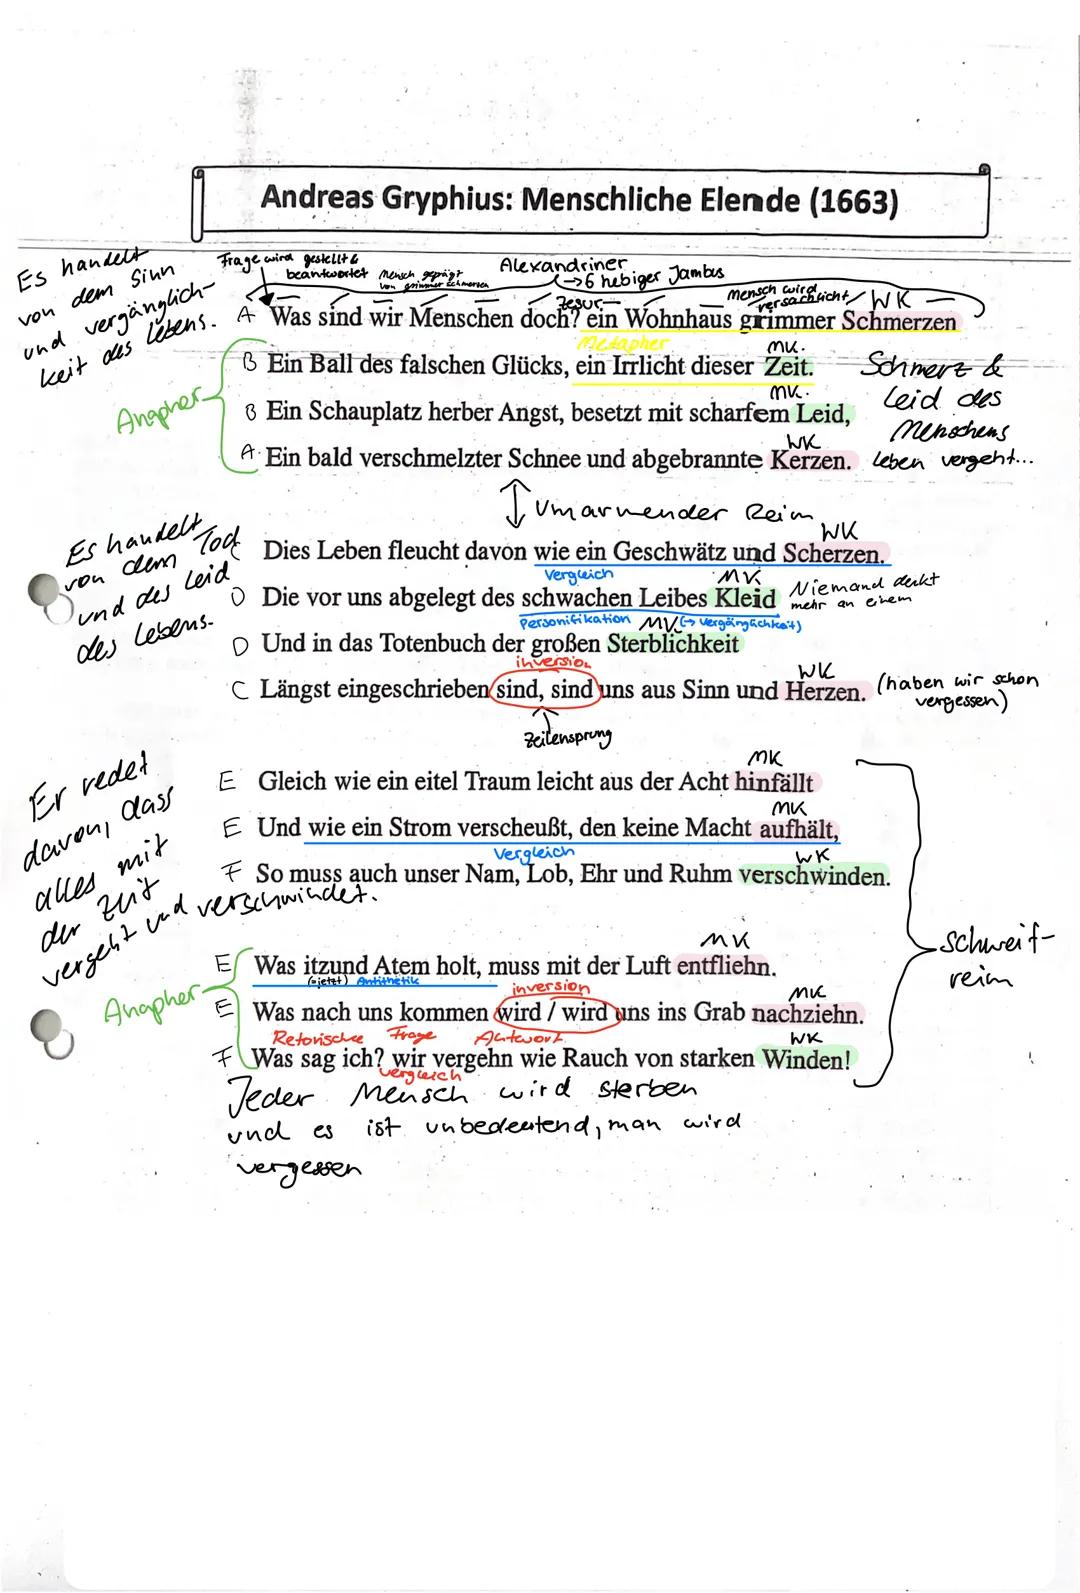 Andreas Gryphius: Menschliche Elende (1663)
Es handelt
von dem Sinn
und vergänglich-
keit des lebens.
Frage wird gestellt &
beantwortet
Mensch geprägt
von grimmer schmerzen
Alexandriner
→6 hebiger Jambus
Zesur
Mensch wird
versachlicht
WK
A Was sind wir Menschen doch? ein Wohnhaus grimmer Schmerzen
Metapher
MK.
B Ein Ball des falschen Glücks, ein Irrlicht dieser Zeit.
MK.
Anapher
B Ein Schauplatz herber Angst, besetzt mit scharfem Leid,
WK
A Ein bald verschmelzter Schnee und abgebrannte Kerzen.
Schmerz &
Leid des
Menschens
leben vergeht...
Umarmender Reim
Es handelt
von dem Tod
und des Leid
des Lebens.
WK
C Dies Leben fleucht davon wie ein Geschwätz und Scherzen.
Vergleich
MK
D Die vor uns abgelegt des schwachen Leibes Kleid
Niemand denkt
mehr an einem
Personifikation MK (→ Vergänglichkeit)
D Und in das Totenbuch der großen Sterblichkeit
inversion
WK
C Längst eingeschrieben sind, sind uns aus Sinn und Herzen.
(haben wir schon
vergessen)
Zeilensprung
Er redet
davon, dass
alles mit
der Zeit
vergeht und verschwindet.
MK
E Gleich wie ein eitel Traum leicht aus der Acht hinfällt
MK
E Und wie ein Strom verscheußt, den keine Macht aufhält,
Vergleich
WK
F So muss auch unser Nam, Lob, Ehr und Ruhm verschwinden.
schweif-
reim
MK
E Was itzund Atem holt, muss mit der Luft entfliehn.
(=jetzt) Antithetik
inversion
MK
Anapher
E Was nach uns kommen wird / wird uns ins Grab nachziehn.
Retorische Frage Antwort
WK
F Was sag ich? wir vergehn wie Rauch von starken Winden!
vergleich
Jeder Mensch wird sterben
und es ist unbedeutend, man wird
vergessen